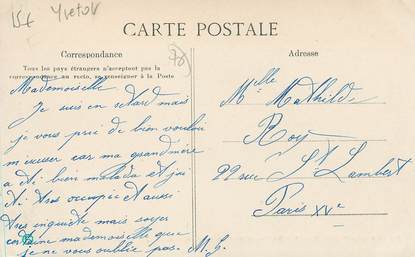 15f Yvetot
CARTE POSTALE
Correspondance
Tous les pays étrangers n'acceptent pas la
correspondance au recto, se renseigner à la Poste
Adresse
Mademoiselle
Je suis en retard mais
je vous prie de bien vouloir
m'excuser car ma grand'mère
a été bien malade et j'ai
été très occupée et aussi
très inquiète mais soyez
certaine mademoiselle que
je ne vous oublie pas. M. G.
Melle Mathilde
Roy
22 rue St Lambert
Paris XVe